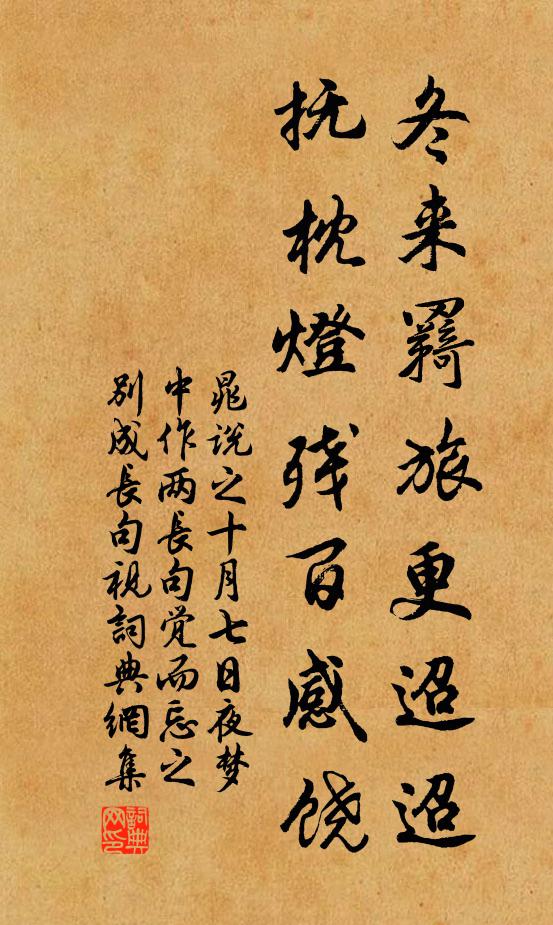 冬来羁旅更迢迢
抚枕燈残百感饶
晁说之十月七日夜梦
中作两长句觉而忘之
别成长句视詞典網集
詞典网印